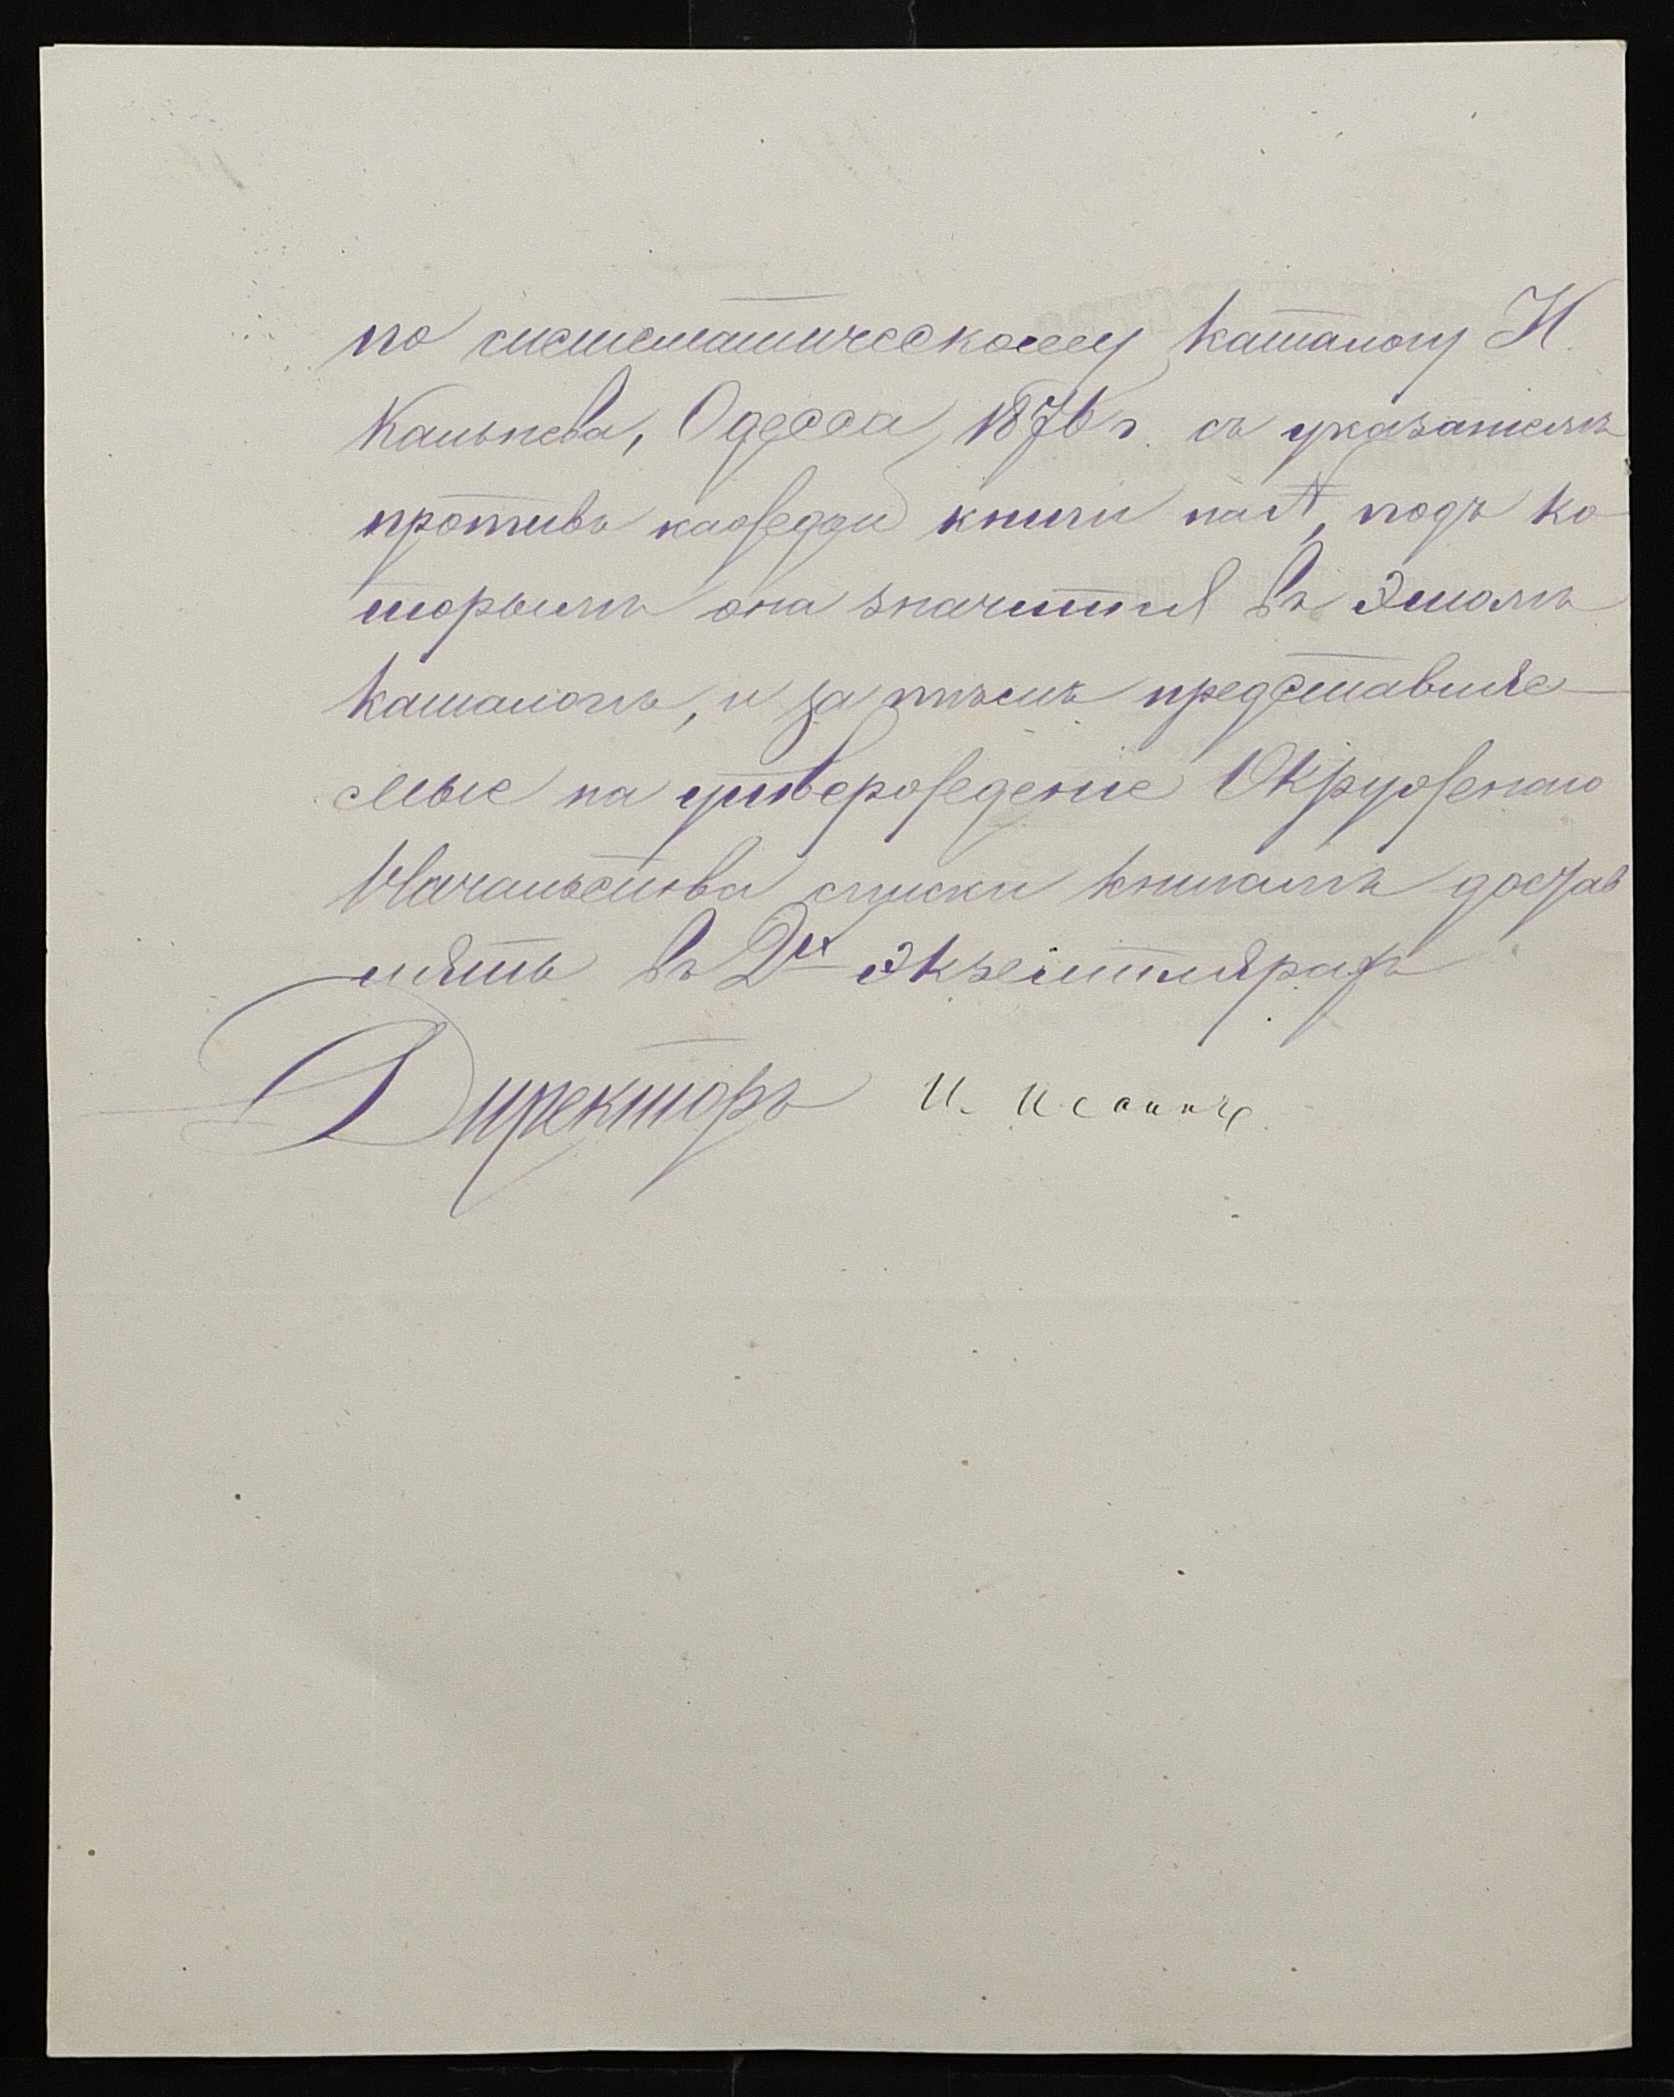 по систематическому каталогу Н.
Кальнева, Одесса, 1876 г. съ указаніемъ
противъ каждой книги на №, подъ ко
торымъ она значится въ этомъ
каталогъ, и за тѣмъ представляе-
мые на утвержденіе Окружнаго
Начальства списки книгамъ достав
лять въ 2хъ экземплярахъ
Директоръ И.